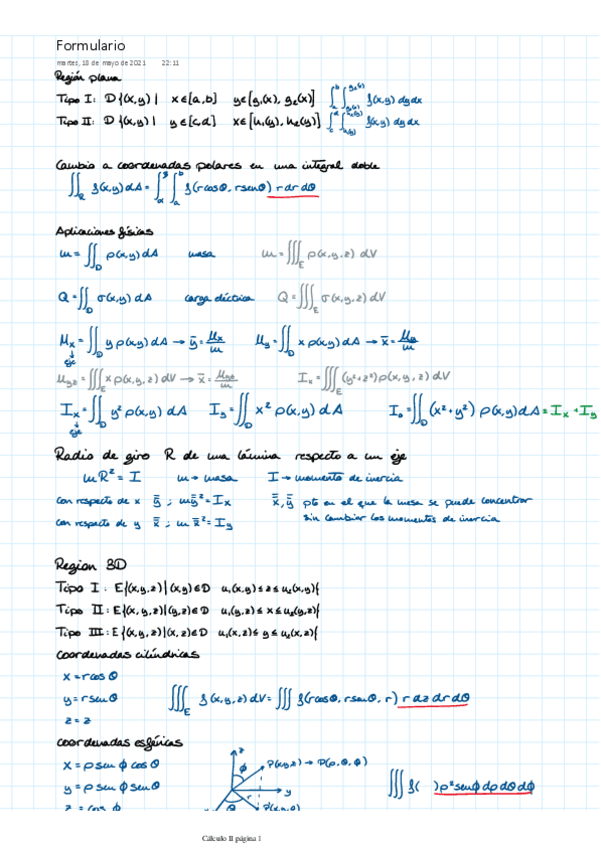 Formulario
martes, 18 de mayo de 2021 22:11
Región plana
Tipo I: D{(x,y) | x∈[a,b] y∈[g₁(x), g₂(x)] ∫ₐᵇ∫_{g₁(x)}^{g₂(x)} f(x,y) dy dx
Tipo II: D{(x,y) | y∈[c,d] x∈[u₁(y), u₂(y)] ∫_c^d∫_{u₁(y)}^{u₂(y)} f(x,y) dy dx
Cambio a coordenadas polares en una integral doble
∬_R f(x,y) dA = ∫_α^β ∫_a^b f(r cos θ, r sen θ) r dr dθ
Aplicaciones físicas
m = ∬_D ρ(x,y) dA masa m = ∭_E ρ(x,y,z) dV
Q = ∬_D σ(x,y) dA carga eléctrica Q = ∭_E σ(x,y,z) dV
M_x = ∬_D y ρ(x,y) dA → ȳ = M_x/m M_y = ∬_D x ρ(x,y) dA → x̄ = M_y/m
eje
M_yz = ∭_E x ρ(x,y,z) dV → x̄ = M_yz/m I_x = ∭_E (y²+z²) ρ(x,y,z) dV
I_x = ∬_D y² ρ(x,y) dA I_y = ∬_D x² ρ(x,y) dA I₀ = ∬_D (x²+y²) ρ(x,y) dA = I_x + I_y
eje
Radio de giro R de una lámina respecto a un eje
mR² = I m → masa I → momento de inercia
con respecto de x ȳ̄ ; mȳ̄² = I_x x̄̄, ȳ̄ pto en el que la masa se puede concentrar
con respecto de y x̄̄ ; m x̄̄² = I_y sin cambiar los momentos de inercia
Region 3D
Tipo I: E{(x,y,z) | (x,y)∈D u₁(x,y) ≤ z ≤ u₂(x,y)}
Tipo II: E{(x,y,z) | (y,z)∈D u₁(y,z) ≤ x ≤ u₂(y,z)}
Tipo III: E{(x,y,z) | (x,z)∈D u₁(x,z) ≤ y ≤ u₂(x,z)}
coordenadas cilíndricas
x = r cos θ
y = r sen θ ∭_E f(x,y,z) dV = ∭ f(r cos θ, r sen θ, r) r dz dr dθ
z = z
coordenadas esféricas
x = ρ sen φ cos θ z φ P(x,y,z) → P(ρ,θ,φ)
y = ρ sen φ sen θ θ r y ∭ f( ) ρ² sen φ dρ dθ dφ
z = cos φ
Cálculo II página 1